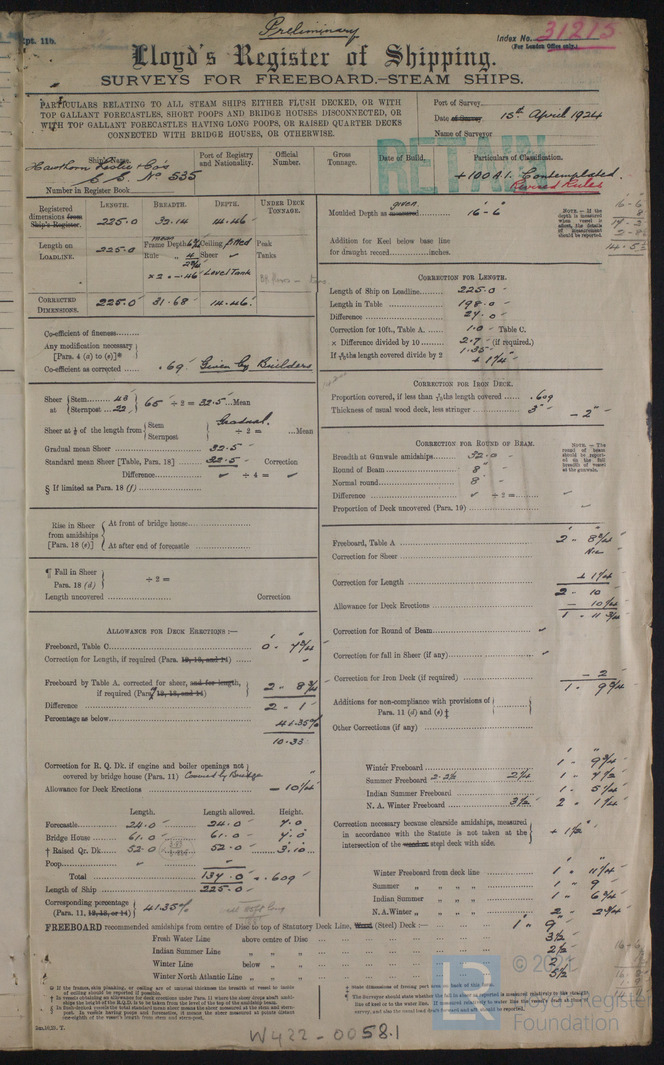 Preliminary
pt. 11b.
Index No. 31215
(For London Office only.)
Lloyd's Register of Shipping.
SURVEYS FOR FREEBOARD.—STEAM SHIPS.
PARTICULARS RELATING TO ALL STEAM SHIPS EITHER FLUSH DECKED, OR WITH
TOP GALLANT FORECASTLES, SHORT POOPS AND BRIDGE HOUSES DISCONNECTED, OR
WITH TOP GALLANT FORECASTLES HAVING LONG POOPS, OR RAISED QUARTER DECKS
CONNECTED WITH BRIDGE HOUSES, OR OTHERWISE.
Port of Survey
Date of Survey 15th April 1924
Name of Surveyor
RETAIN
Ship's Name. Port of Registry and Nationality. Official Number. Gross Tonnage. Date of Build. Particulars of Classification.
Hawthorn Leslie & Co's
S.S. No 535
+100A1. Contemplated.
Revised Rules
Number in Register Book
Registered dimensions from Ship's Register. LENGTH. BREADTH. DEPTH. UNDER DECK TONNAGE.
225.0 32.14 14.46
Length on LOADLINE. 225.0 Frame Depth Ceiling fitted Peak
Rule Sheer Tanks
Level Tank
CORRECTED DIMENSIONS. 225.0 31.68 14.46
Moulded Depth as measured given 16-6
Addition for Keel below base line
for draught record inches.
NOTE.—If the depth is measured when vessel is afloat, the details of measurement should be reported.
16-6
8
17-2
Co-efficient of fineness
Any modification necessary
[Para. 4 (a) to (e)]*
Co-efficient as corrected .69 Given by Builders
CORRECTION FOR LENGTH.
Length of Ship on Loadline 225.0
Length in Table 198.0
Difference 27.0
Correction for 10ft., Table A. 1.0 Table C.
× Difference divided by 10 2.7 (if required.)
If 6/10ths length covered divide by 2 1.35
+ 1¼
Sheer at Stem 43 Sternpost 22 65 ÷ 2 = 32.5 Mean
Sheer at ⅛ of the length from Stem Sternpost Gradual. ÷ 2 = Mean
Gradual mean Sheer 32.5
Standard mean Sheer [Table, Para. 18] 32.5 Correction
Difference ÷ 4 =
§ If limited as Para. 18 (f)
CORRECTION FOR IRON DECK.
Proportion covered, if less than 7/10ths length covered .609
Thickness of usual wood deck, less stringer 3" − 2"
CORRECTION FOR ROUND OF BEAM.
Breadth at Gunwale amidships 32.0
Round of Beam 8"
Normal round 8"
Difference ÷ 2 =
Proportion of Deck uncovered (Para. 19)
NOTE.—The round of beam should be reported on the full breadth of vessel at the gunwale.
Rise in Sheer from amidships [Para. 18 (e)]
At front of bridge house
At after end of forecastle
¶ Fall in Sheer Para. 18 (d) ÷ 2 =
Length uncovered Correction
Freeboard, Table A 2 - 8¾
Correction for Sheer Nil
Correction for Length + 1¼
2 - 10
Allowance for Deck Erections − 10¼
1 - 11¾
Correction for Round of Beam
Correction for fall in Sheer (if any)
Correction for Iron Deck (if required) − 2
1 - 9¾
Additions for non-compliance with provisions of
Para. 11 (d) and (e) ‡
Other Corrections (if any)
ALLOWANCE FOR DECK ERECTIONS:—
Freeboard, Table C 0 - 7¾
Correction for Length, if required (Para. 12, 13, and 14)
Freeboard by Table A. corrected for sheer, and for length,
if required (Para. 12, 13, and 14) 2 - 8¾
Difference 2 - 1
Percentage as below 41.35%
10.33
Correction for R. Q. Dk. if engine and boiler openings not
covered by bridge house (Para. 11) Covered by Bridge
Allowance for Deck Erections − 10¼
Length. Length allowed. Height.
Forecastle 24.0 24.0 7.0
Bridge House 61.0 61.0 7.0
† Raised Qr. Dk. 52.0 52.0 3.10
Poop
Total 137.0 .609
Length of Ship 225.0
Corresponding percentage
(Para. 11, 12, 13, or 14) 41.35%
Winter Freeboard 1 - 9¾
Summer Freeboard 2¼ 1 - 7½
Indian Summer Freeboard 1 - 5¼
N. A. Winter Freeboard 3½ 2 - 1¼
Correction necessary because clearside amidships, measured
in accordance with the Statute is not taken at the
intersection of the wood or steel deck with side. + 1½
Winter Freeboard from deck line 1 - 11¼
Summer „ „ „ „ 1 - 9
Indian Summer „ „ „ „ 1 - 6¾
N. A. Winter „ „ „ „ 2 - 2¾
FREEBOARD recommended amidships from centre of Disc to top of Statutory Deck Line, Wood (Steel) Deck:— 1' 9"
Fresh Water Line above centre of Disc 3½
Indian Summer Line „ „ 2½
Winter Line below „ 2
Winter North Atlantic Line „ „ 5½
W422-0058.1
© 2021
LR
Lloyd's Register
Foundation